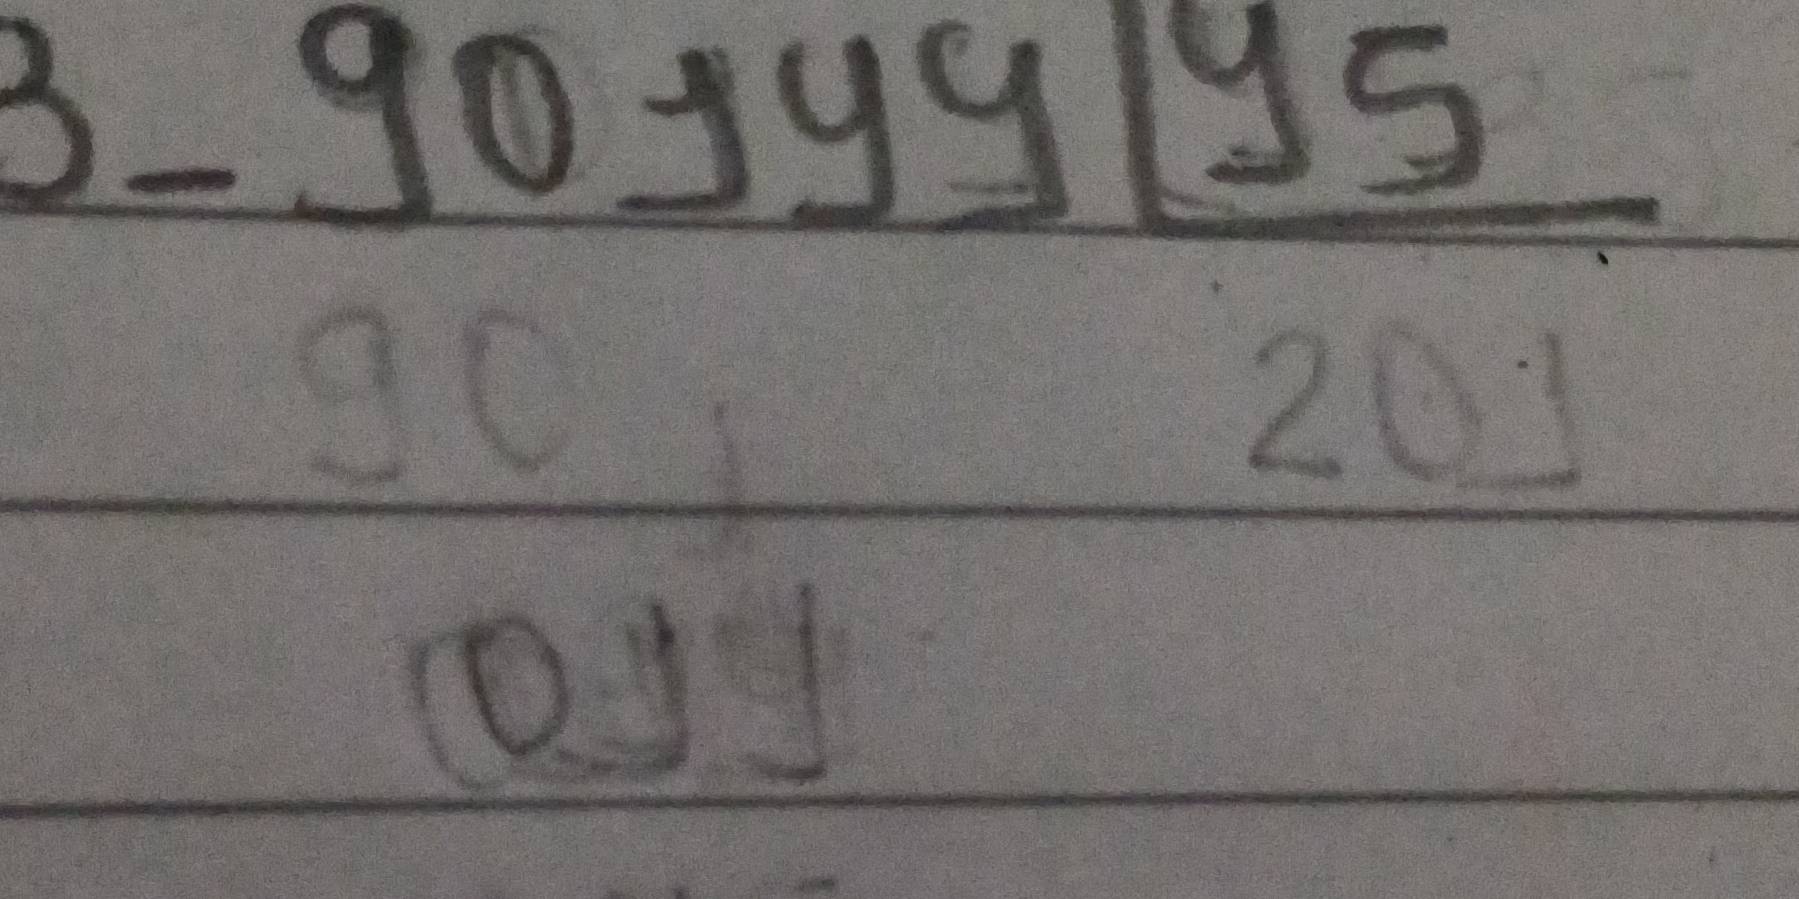 3-90144 45
90 201
011